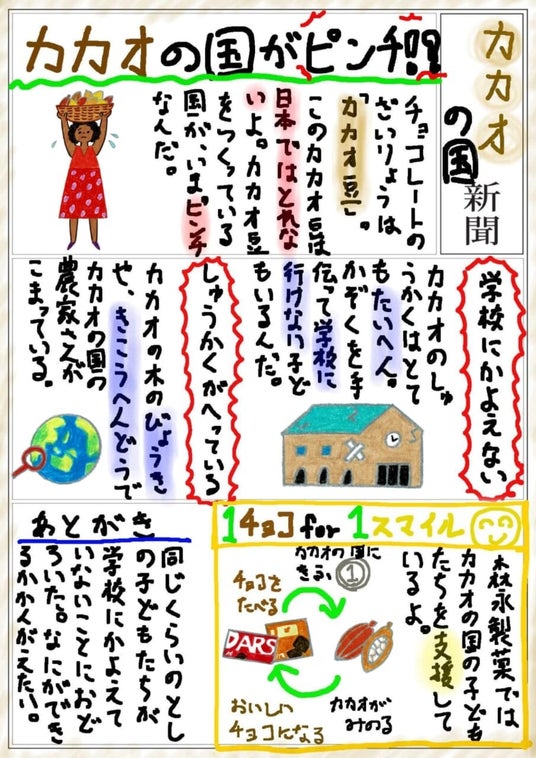 カカオ
の国
新聞
カカオの国がピンチ!!
チョコレートの
ざいりょうは
「カカオ豆」。
このカカオ豆は
日本ではとれな
いよ。カカオ豆
をつくっている
国が、いまピンチ
なんだ。
学校にかよえない
カカオのしゅ
うかくはとて
もたいへん。
かぞくを手
伝って学校に
行けない子ど
もいるんだ。
しゅうかくがへっている
カカオの木のびょうき
や、きこうへんどうで
カカオの国の
農家さんが
こまっている。
1チョコfor1スマイル
森永製菓では
カカオの国の子ども
たちを支援して
いるよ。
カカオの国に
きふ①
チョコを
たべる
DARS
カカオが
みのる
おいしい
チョコになる
あとがき
同じくらいのとし
の子どもたちが
学校にかよえて
いないことにおど
ろいた。なにができ
るかかんがえたい。